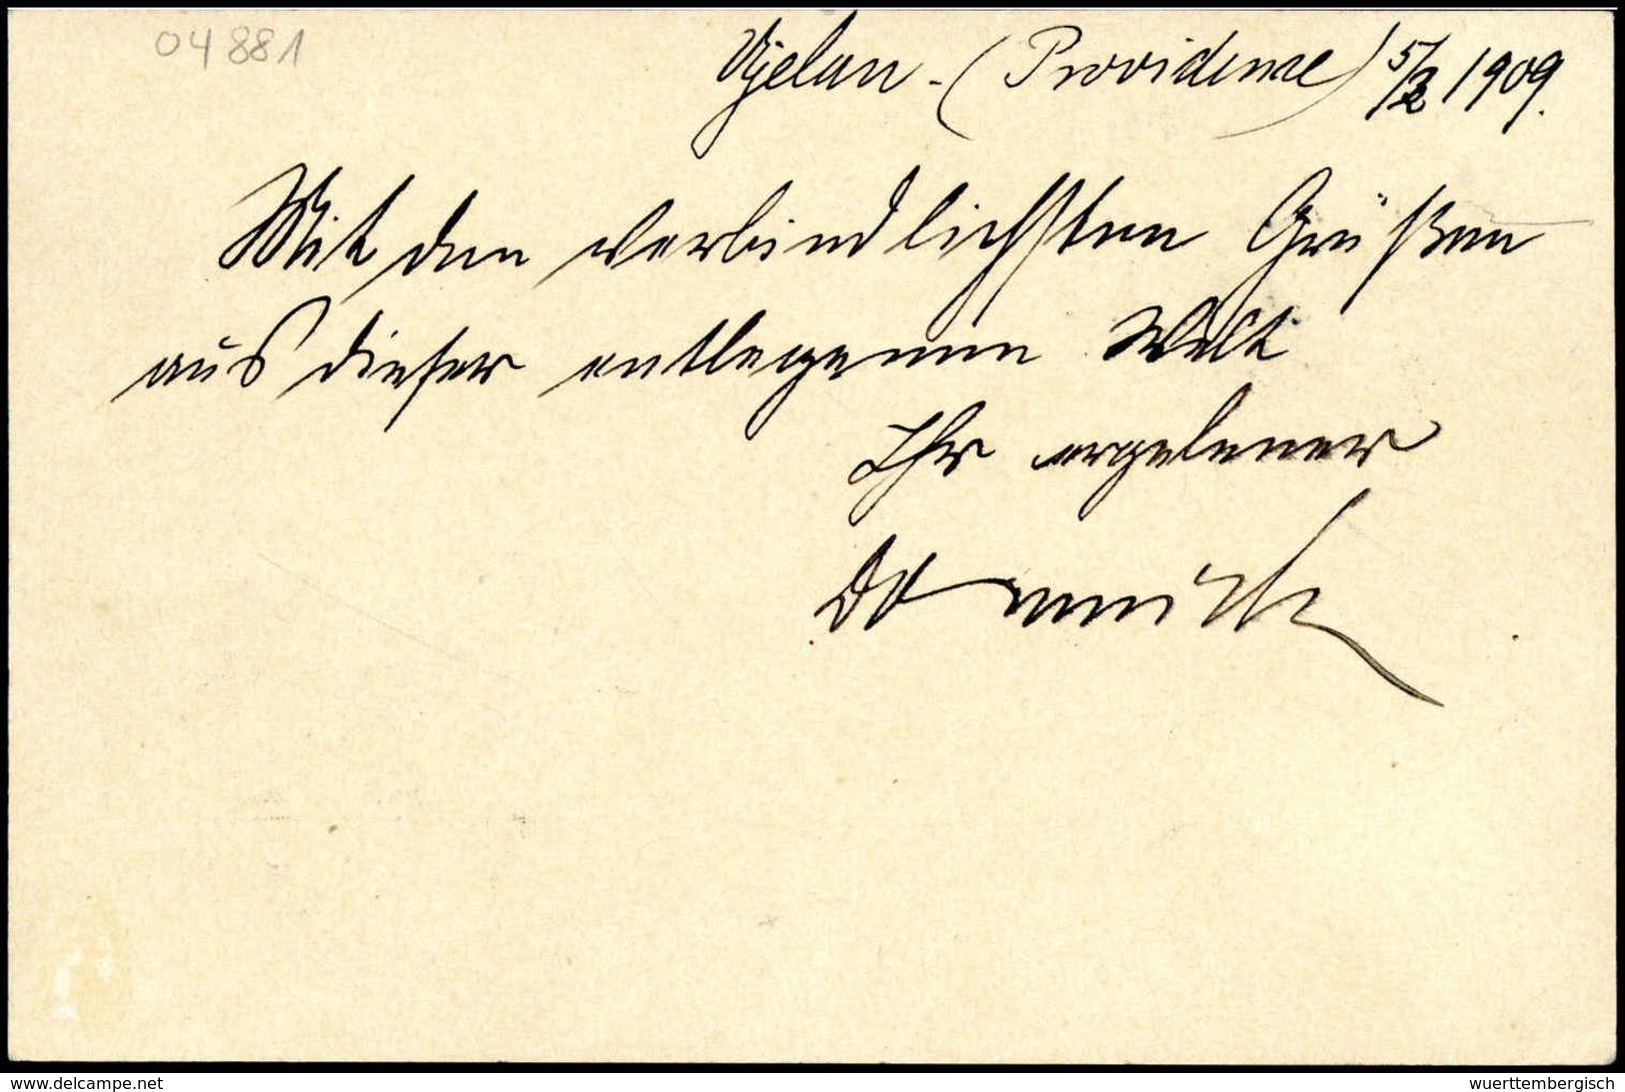 04881
Ujelan - (Providence) 5/2 1909.
Mit den verbindlichsten Grüßen
aus dieser entlegenen Welt
Ihr ergebener
www.delcampe.net
wuerttembergisch